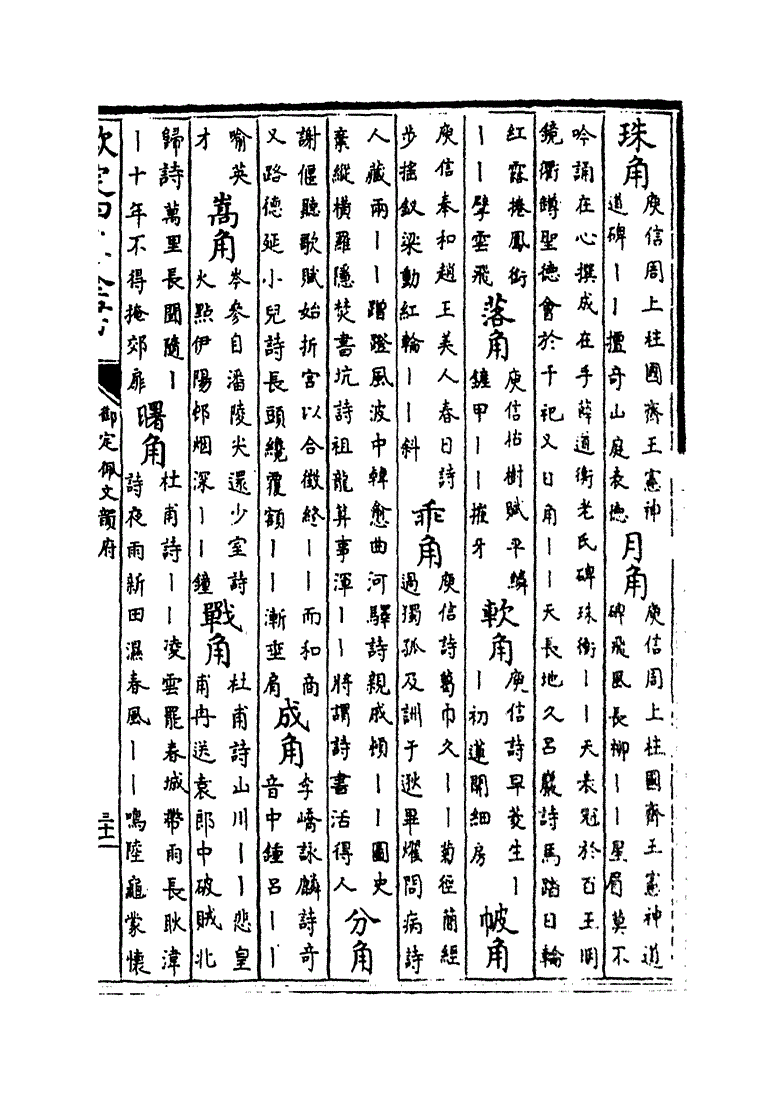 珠角庾信周上柱國齊王憲神
道碑｜｜擅奇山庭表德
月角庾信周上柱國齊王憲神道
碑飛風長柳｜｜星眉莫不
吟誦在心撰成在手薛道衡老氏碑珠衡｜｜天表冠於百王明
鏡衢罇聖德會於千祀又日角｜｜天長地久呂巖詩馬踏日輪
紅露捲鳳銜
｜｜擘雲飛
落角庾信枯樹賦平鱗
鏟甲｜｜摧牙
軟角庾信詩早菱生｜
｜初蓮開細房
帔角
庾信奉和趙王美人春日詩
步搖釵梁動紅輪｜｜斜
乖角庾信詩葛巾久｜｜菊徑簡經
過獨孤及訓于逖畢燿問病詩
人藏兩｜｜蹭蹬風波中韓愈曲河驛詩親戚頓｜｜圖史
棄縱橫羅隱焚書坑詩祖龍算事渾｜｜將謂詩書活得人
分角
謝偃聽歌賦始折宮以合徵終｜｜而和商
又路德延小兒詩長頭纔覆額｜｜漸垂肩
成角李嶠詠麟詩奇
音中鍾呂｜｜
喻英
才
嵩角岑參自潘陵尖還少室詩
火點伊陽邨烟深｜｜鐘
戰角杜甫詩山川｜｜悲皇
甫冉送袁郎中破賊北
歸詩萬里長聞隨｜
｜十年不得掩郊扉
曙角杜甫詩｜｜凌雲罷春城帶雨長耿湋
詩夜雨新田濕春風｜｜鳴陸龜蒙懷
欽定四庫全書
御定佩文韻府
三十二